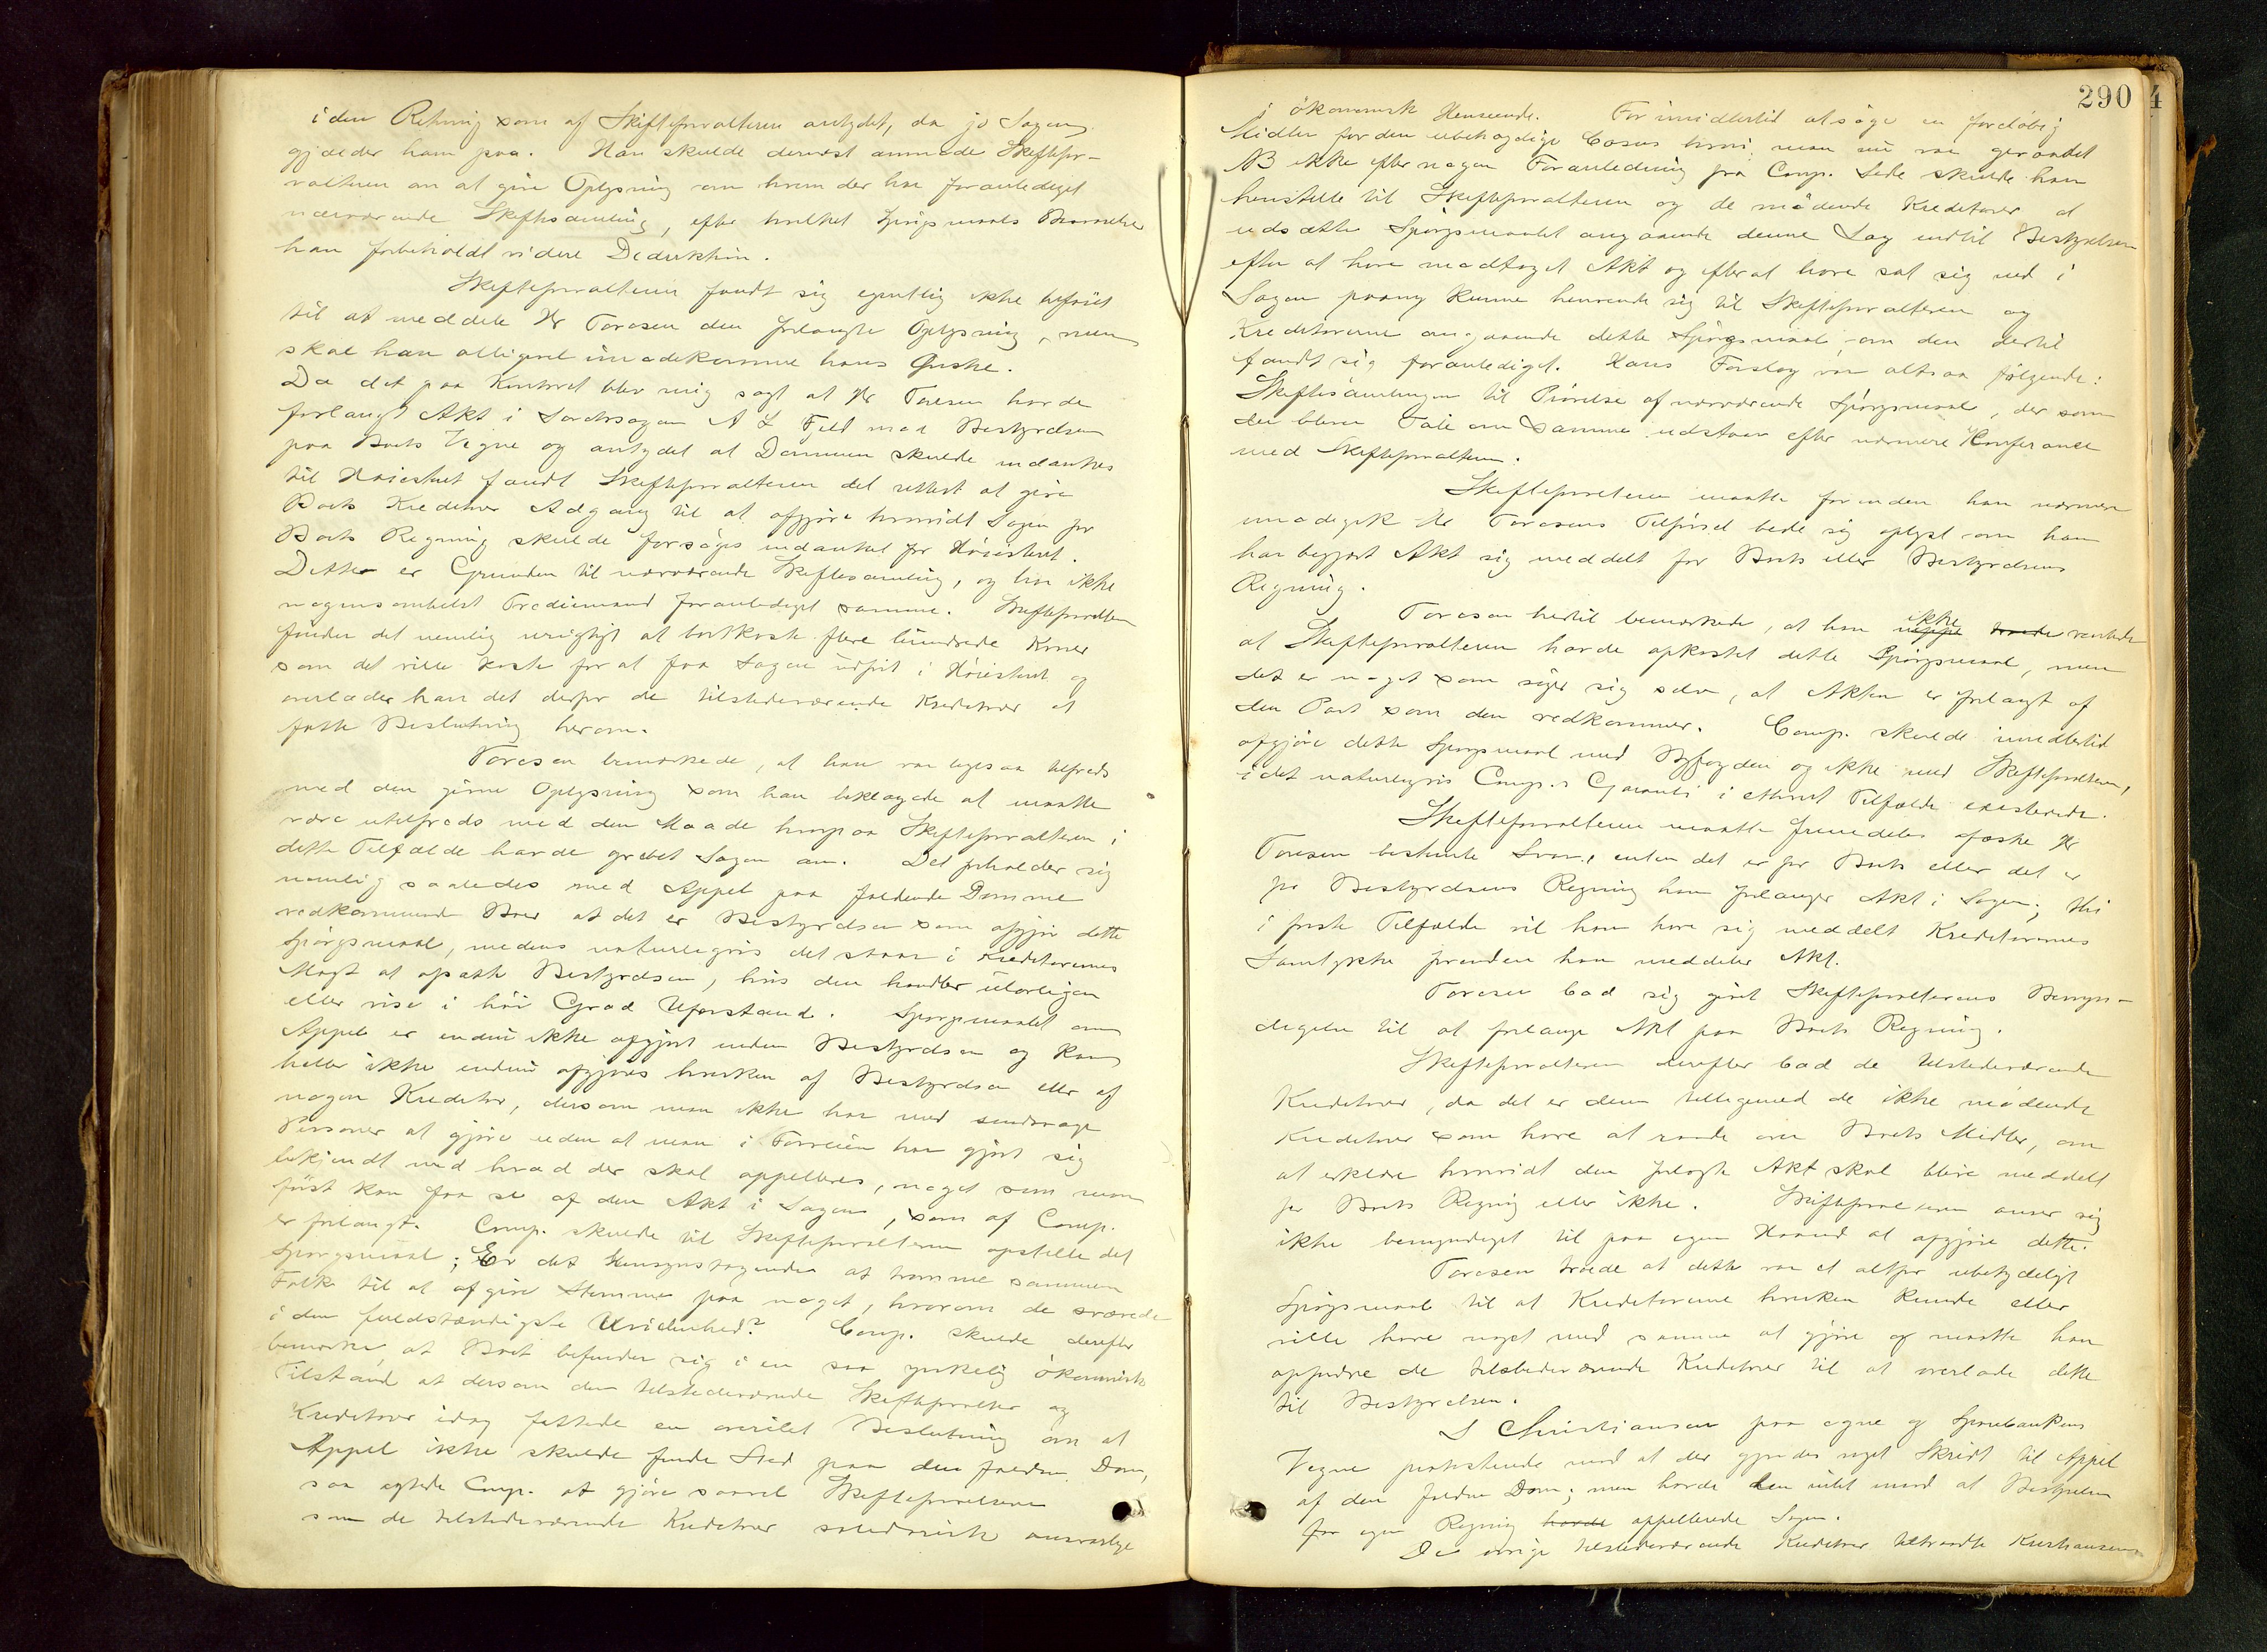 i den Retning som af Skifteforvalteren antydet, da jo Sagen
gjælder ham paa. Han skulde dernæst anmode Skiftefor-
valteren om at give Oplysning om hvem der har foranlediget
nærværende Skiftesamling, efter hvilket Spørgsmaals Besvarelse
han forbeholdt videre Deduktion.
Skifteforvalteren fandt sig egentlig ikke beføiet
til at meddele Hr Foresen den forlangte Oplysning, men
skal han alligevel imødekomme hans Ønske.
Da det paa Kontoret blev mig sagt at Hr Foresen havde
forlangt Akt i Søndssagen A L Feld mod Bestyrelsen
paa Boets Vegne og antydet at Dommen skulde indankes
til Høiesteret fandt Skifteforvalteren det rettest at give
Boets Kreditorer Adgang til at afgjøre hvorvidt Sagen for
Boets Regning skulde forsøges indanket for Høiesteret.
Dette er Grunden til nærværende Skiftesamling, og har ikke
nogensomhelst Trediemand foranlediget samme. Skifteforvalteren
finder det nemlig urigtigt at bortkaste flere hundrede Kroner
som det ville koste for at faa Sagen udført i Høiesteret og
overlader han det derfor de tilstedeværende Kreditorer at
fatte Beslutning herom.
Foresen bemærkede, at han var ligesaa tilfreds
med den givne Oplysning som han beklagede at maatte
være utilfreds med den Maade hvorpaa Skifteforvalteren i
dette Tilfælde havde grebet Sagen an. Det forholder sig
nemlig saaledes med Appel paa faldende Domme
vedkommende Boer at det er Bestyrelsen som afgjør dette
Spørgsmaal, medens naturligvis det staar i Kreditorernes
Magt at afsætte Bestyrelsen, hvis den handler utilbørligen
eller viser i høi Grad Uforstand. Spørgsmaalet om
Appel er endnu ikke afgjort inden Bestyrelsen og kan
heller ikke endnu afgjøres hverken af Bestyrelsen eller af
nogen Kreditor, dersom man ikke har med
Personer at gjøre uden at man i Forveien har gjort sig
bekjendt med hvad der skal appelleres, noget som man
først kan faa se af den Akt i Sagen, som af Comp.
er forlangt. Comp. skulde til Skifteforvalteren opstille det
Spørgsmaal; Er det Hensynstagende at tromme sammen
Folk til at afgive Stemme paa noget, hvorom de svæver
i den fuldstændigste Uvidenhed? Comp. skulde derefter
bemærke, at Boet befinder sig i en saa ynkelig økonomisk
Tilstand at dersom den tilstedeværende Skifteforvalter og
Kreditorer idag fattede en overilet Beslutning om at
Appel ikke skulde finde Sted paa den faldne Dom,
saa agtede Comp. at gjøre saavel Skifteforvalteren
som de tilstedeværende Kreditorer solidarisk ansvarlige
290
i økonomisk Henseende. For imidlertid at søge en foreløbig
Middel for den ubehagelige Casus hvori man nu var geraadet
NB ikke efter nogen Foranledning fra Comp. Side skulde han
henstille til Skifteforvalteren og de mødende Kreditorer at
udsætte Spørgsmaalet angaaende denne Sag indtil Bestyrelsen
efter at have modtaget Akt og efter at have sat sig ind i
Sagen paany kunne henvende sig til Skifteforvalteren og
Kreditorerne angaaende dette Spørgsmaal, om den dertil
fandt sig foranlediget. Hans Forslag var altsaa følgende:
Skiftesamlingen til Prøvelse af nærværende Spørgsmaal, der som
der bliver Tale om samme udstaar efter nærmere Konferance
med Skifteforvalteren.
Skifteforvalteren maatte forinden han nærmere
imødegik Hr Foresens Tilførsel bede sig oplyst om han
har begjært Akt sig meddelt for Boets eller Bestyrelsens
Regning.
Foresen hertil bemærkede, at han ikke ventede
at Skifteforvalteren havde opkastet dette Spørgsmaal, men
det er noget som siger sig selv, at Akten er forlangt af
den Part som den vedkommer. Comp. skulde imidlertid
afgjøre dette Spørgsmaal med Byfogden og ikke med Skifteforvalteren,
idet naturligvis Comp.s Garanti i ethvert Tilfælde existerede.
Skifteforvalteren maatte fremdeles afæske Hr
Foresen bestemte Svar, enten det er for Boets eller det er
for Bestyrelsens Regning han forlanger Akt i Sagen; thi
i første Tilfælde vil han have sig meddelt Kreditorernes
Samtykke forinden han meddeler Akt.
Foresen bad sig givet Skifteforvalterens Bemyn-
digelse til at forlange Akt paa Boets Regning.
Skifteforvalteren derefter bad de tilstedeværende
Kreditorer, da det er dem tilligemed de ikke mødende
Kreditorer som have at raade over Boets Midler, om
at erklære hvorvidt den forlangte Akt skal blive meddelt
for Boets Regning eller ikke. Skifteforvalteren anser sig
ikke bemyndiget til paa egen Haand at afgjøre dette.
Foresen troede at dette var et altfor ubetydeligt
Spørgsmaal til at Kreditorerne hverken kunde eller
ville have noget med samme at gjøre og maatte han
opfordre de tilstedeværende Kreditorer til at overlade dette
til Bestyrelsen.
S Christiansen paa egne og Sparebankens
Vegne protesterede mod at der gjordes noget Skridt til Appel
af den faldne Dom; men havde den intet imod at Bestyrelsen
for egen Regning havde appellerede Sagen.
De øvrige tilstedeværende Kreditorer tiltraadte Kristiansens